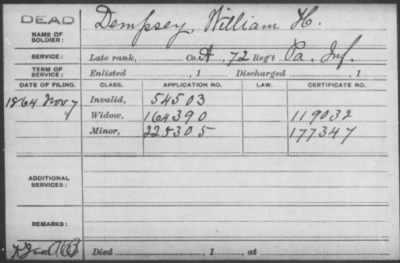 DEAD
NAME OF SOLDIER: Dempsey, William H.
SERVICE: Late rank, Co. A, 72 Reg't Pa. Inf.
TERM OF SERVICE: Enlisted , 1 Discharged , 1
DATE OF FILING. CLASS. APPLICATION NO. LAW. CERTIFICATE NO.
1864 Nov 7 Invalid, 54503
Widow, 164390 119032
Minor, 225305 177347
ADDITIONAL SERVICES:
REMARKS:
Died , 1 , at